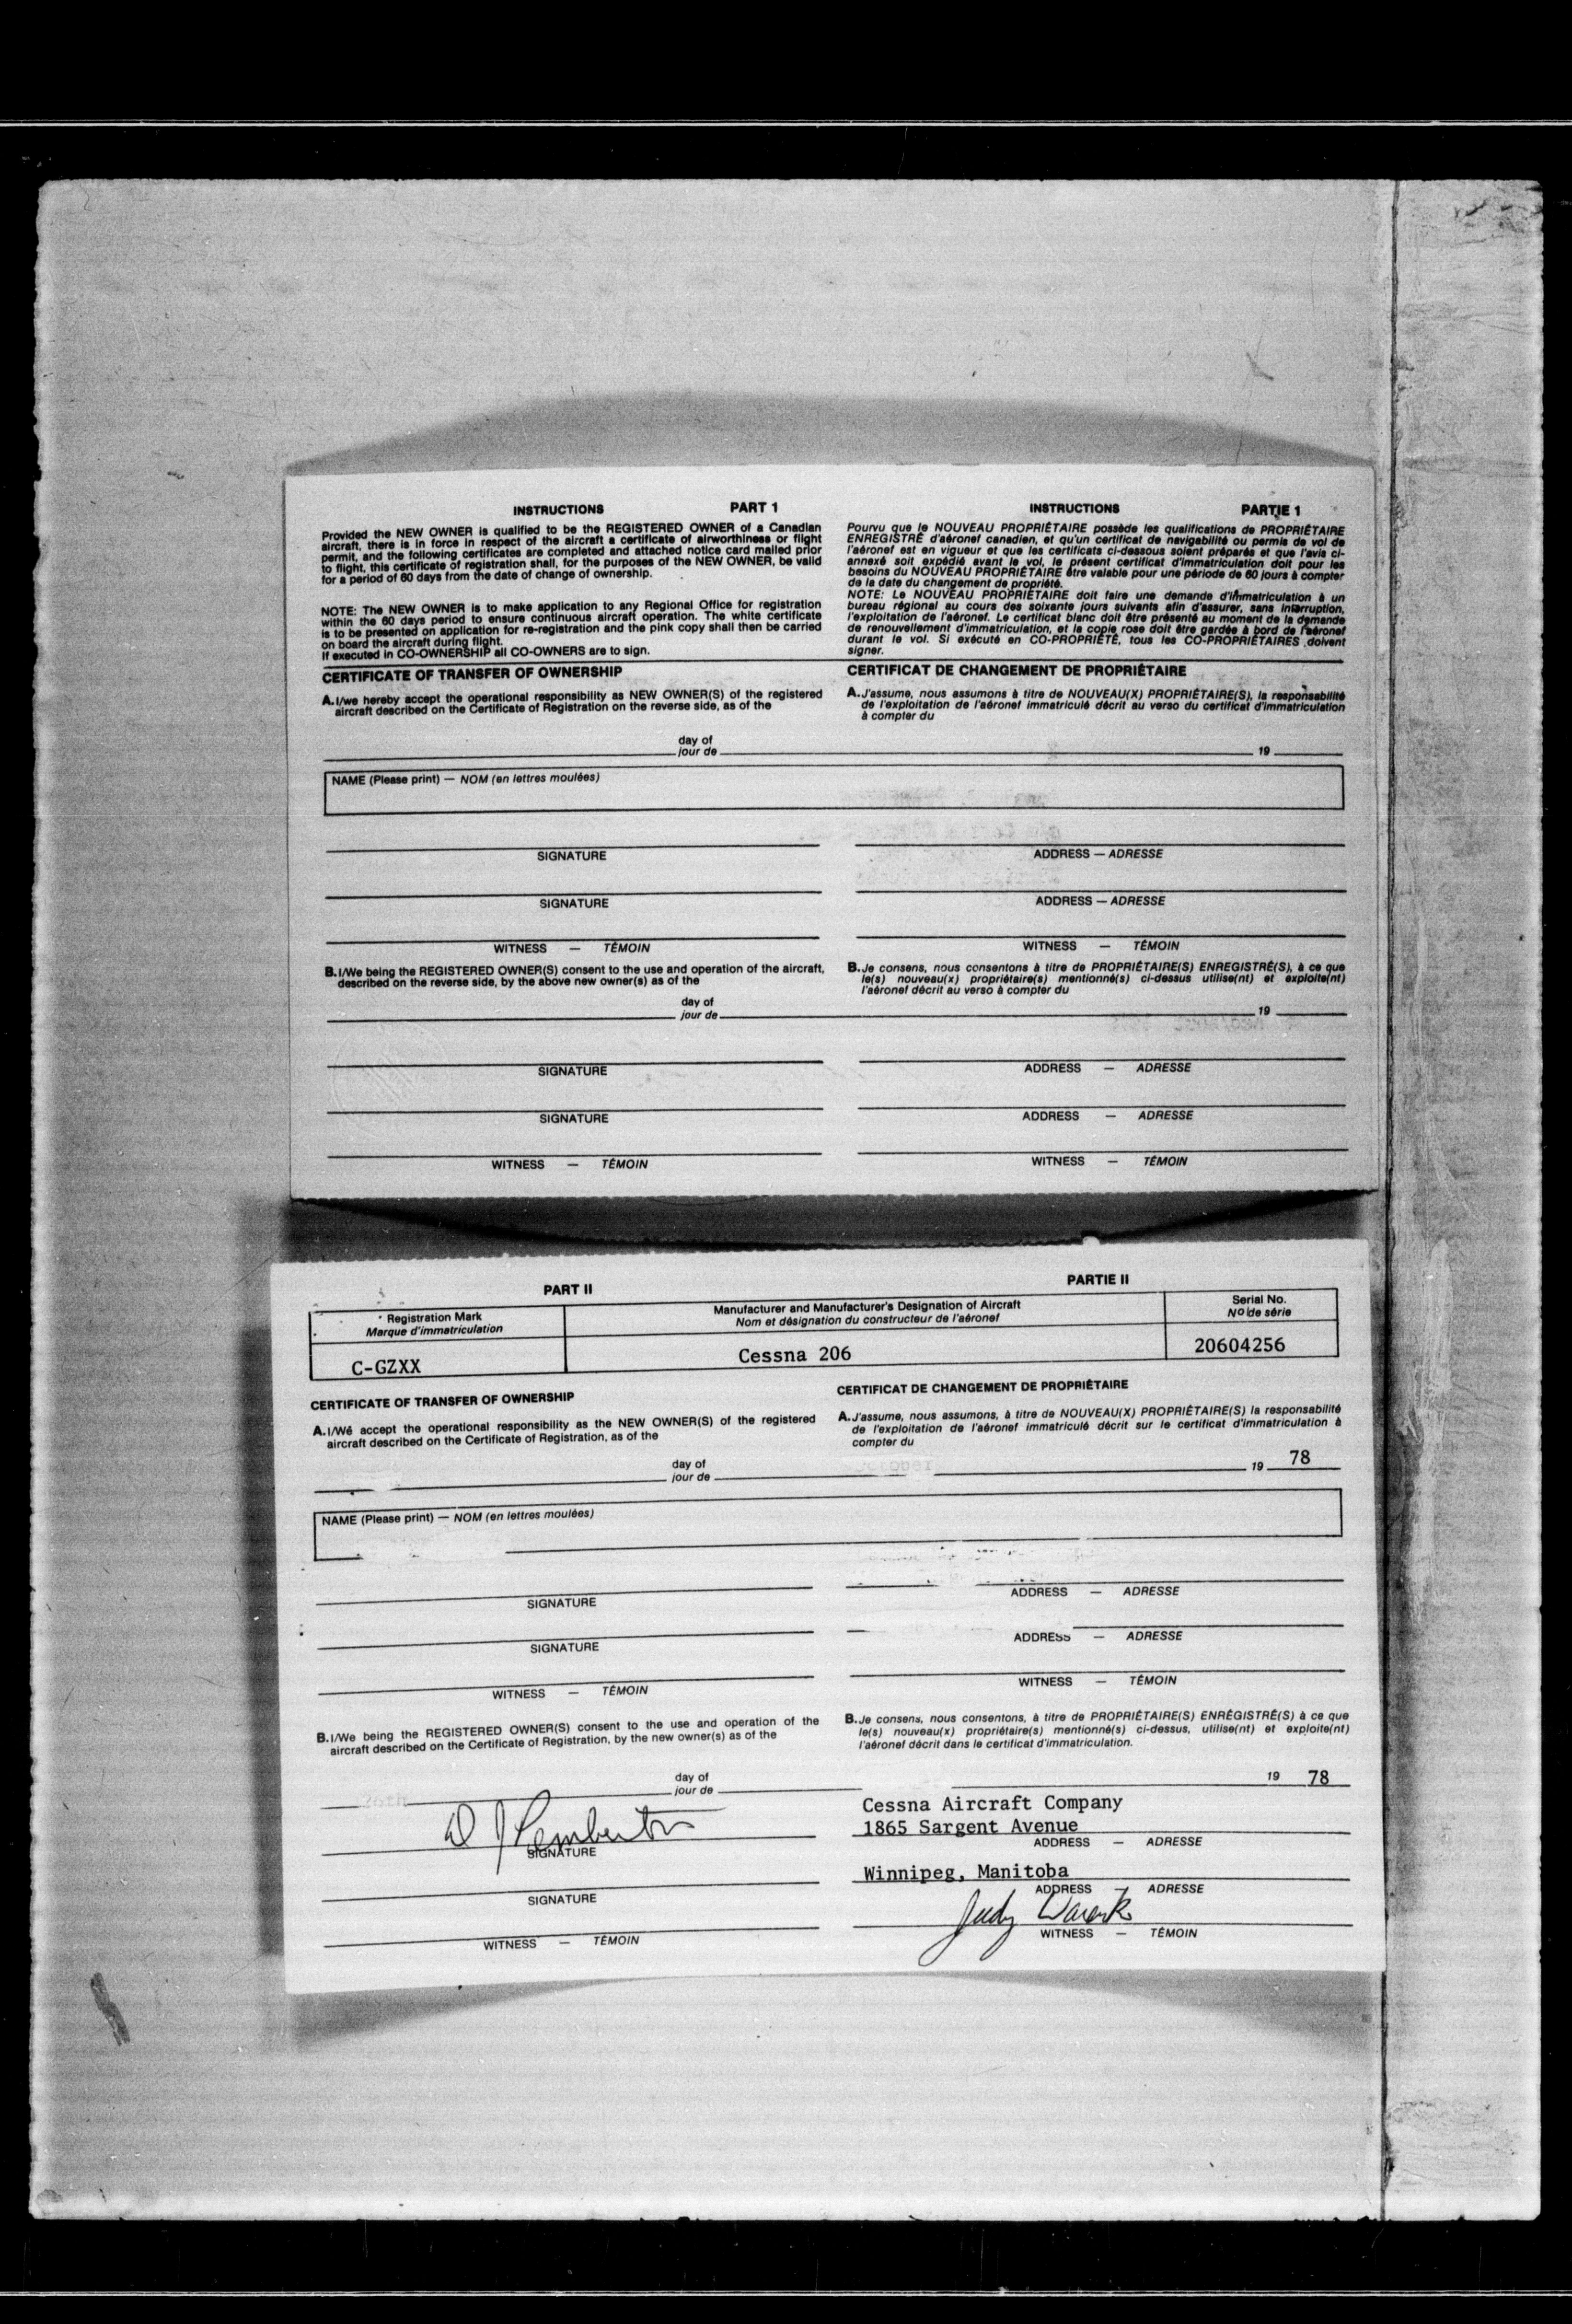 INSTRUCTIONS PART 1
Provided the NEW OWNER is qualified to be the REGISTERED OWNER of a Canadian
aircraft, there is in force in respect of the aircraft a certificate of airworthiness or flight
permit, and the following certificates are completed and attached notice card mailed prior
to flight, this certificate of registration shall, for the purposes of the NEW OWNER, be valid
for a period of 60 days from the date of change of ownership.
NOTE: The NEW OWNER is to make application to any Regional Office for registration
within the 60 days period to ensure continuous aircraft operation. The white certificate
is to be presented on application for re-registration and the pink copy shall then be carried
on board the aircraft during flight.
If executed in CO-OWNERSHIP all CO-OWNERS are to sign.
INSTRUCTIONS PARTIE 1
Pourvu que le NOUVEAU PROPRIÉTAIRE possède les qualifications de PROPRIÉTAIRE
ENREGISTRÉ d'aéronef canadien, et qu'un certificat de navigabilité ou permis de vol de
l'aéronef est en vigueur et que les certificats ci-dessous soient préparés et que l'avis ci-
annexé soit expédié avant le vol, le présent certificat d'immatriculation doit pour les
besoins du NOUVEAU PROPRIÉTAIRE être valable pour une période de 60 jours à compter
de la date du changement de propriété.
NOTE: Le NOUVEAU PROPRIÉTAIRE doit faire une demande d'immatriculation à un
bureau régional au cours des soixante jours suivants afin d'assurer, sans interruption,
l'exploitation de l'aéronef. Le certificat blanc doit être présenté au moment de la demande
de renouvellement d'immatriculation, et la copie rose doit être gardée à bord de l'aéronef
durant le vol. Si exécuté en CO-PROPRIÉTÉ, tous les CO-PROPRIÉTAIRES doivent
signer.
CERTIFICATE OF TRANSFER OF OWNERSHIP
A. I/we hereby accept the operational responsibility as NEW OWNER(S) of the registered
aircraft described on the Certificate of Registration on the reverse side, as of the
CERTIFICAT DE CHANGEMENT DE PROPRIÉTAIRE
A. J'assume, nous assumons à titre de NOUVEAU(X) PROPRIÉTAIRE(S), la responsabilité
de l'exploitation de l'aéronef immatriculé décrit au verso du certificat d'immatriculation
à compter du
day of
jour de 19
NAME (Please print) — NOM (en lettres moulées)
SIGNATURE ADDRESS — ADRESSE
SIGNATURE ADDRESS — ADRESSE
WITNESS — TÉMOIN WITNESS — TÉMOIN
B. I/We being the REGISTERED OWNER(S) consent to the use and operation of the aircraft,
described on the reverse side, by the above new owner(s) as of the
B. Je consens, nous consentons à titre de PROPRIÉTAIRE(S) ENREGISTRÉ(S), à ce que
le(s) nouveau(x) propriétaire(s) mentionné(s) ci-dessus utilise(nt) et exploite(nt)
l'aéronef décrit au verso à compter du
day of
jour de 19
SIGNATURE ADDRESS — ADRESSE
SIGNATURE ADDRESS — ADRESSE
WITNESS — TÉMOIN WITNESS — TÉMOIN
PART II PARTIE II
Registration Mark
Marque d'immatriculation
Manufacturer and Manufacturer's Designation of Aircraft
Nom et désignation du constructeur de l'aéronef
Serial No.
No de série
C-GZXX Cessna 206 20604256
CERTIFICATE OF TRANSFER OF OWNERSHIP
A. I/We accept the operational responsibility as the NEW OWNER(S) of the registered
aircraft described on the Certificate of Registration, as of the
CERTIFICAT DE CHANGEMENT DE PROPRIÉTAIRE
A. J'assume, nous assumons, à titre de NOUVEAU(X) PROPRIÉTAIRE(S) la responsabilité
de l'exploitation de l'aéronef immatriculé décrit sur le certificat d'immatriculation à
compter du
day of
jour de October 19 78
NAME (Please print) — NOM (en lettres moulées)
SIGNATURE ADDRESS — ADRESSE
SIGNATURE ADDRESS — ADRESSE
WITNESS — TÉMOIN WITNESS — TÉMOIN
B. I/We being the REGISTERED OWNER(S) consent to the use and operation of the
aircraft described on the Certificate of Registration, by the new owner(s) as of the
B. Je consens, nous consentons, à titre de PROPRIÉTAIRE(S) ENRÉGISTRÉ(S) à ce que
le(s) nouveau(x) propriétaire(s) mentionné(s) ci-dessus, utilise(nt) et exploite(nt)
l'aéronef décrit dans le certificat d'immatriculation.
day of
jour de 19 78
D J Pemberton
SIGNATURE
Cessna Aircraft Company
1865 Sargent Avenue
ADDRESS — ADRESSE
Winnipeg, Manitoba
SIGNATURE ADDRESS — ADRESSE
Judy
WITNESS — TÉMOIN WITNESS — TÉMOIN